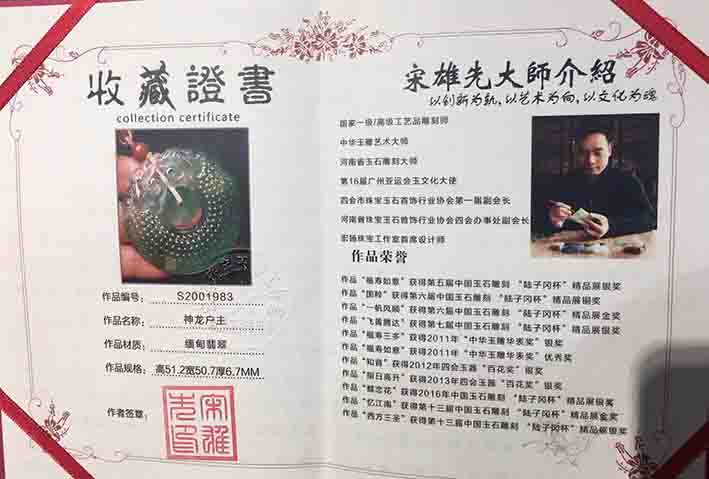 收藏證書
collection certificate
作品编号： S2001983
作品名称： 神龙户主
作品材质： 缅甸翡翠
作品规格： 高51.2宽50.7厚6.7MM
作者签章：
宋雄先印
宋雄先大师介紹
以创新为轨，以艺术为向，以文化为魂
国家一级/高级工艺品雕刻师
中华玉雕艺术大师
河南省玉石雕刻大师
第16届广州亚运会玉文化大使
四会市珠宝玉石首饰行业协会第一届副会长
河南省珠宝玉石首饰行业协会四会办事处副会长
宏扬珠宝工作室首席设计师
作品荣誉
作品“福寿如意”获得第五届中国玉石雕刻 “陆子冈杯”精品展银奖
作品“国粹”获得第六届中国玉石雕刻 “陆子冈杯”精品展银奖
作品“一帆风顺”获得第六届中国玉石雕刻 “陆子冈杯”精品展金奖
作品“飞黄腾达”获得第七届中国玉石雕刻 “陆子冈杯”精品展银奖
作品“福寿三多”获得2011年“中华玉雕华表奖”银奖
作品“福寿如意”获得2011年“中华玉雕华表奖”优秀奖
作品“知音”获得2012年四会玉器“百花奖”银奖
作品“指日高升”获得2013年四会玉器“百花奖”银奖
作品“蝶恋花”获得2016年中国玉石雕刻 “陆子冈杯”精品展银奖
作品“忆江南”获得第十三届中国玉石雕刻 “陆子冈杯”精品展金奖
作品“西方三圣”获得第十三届中国玉石雕刻 “陆子冈杯”精品展银奖